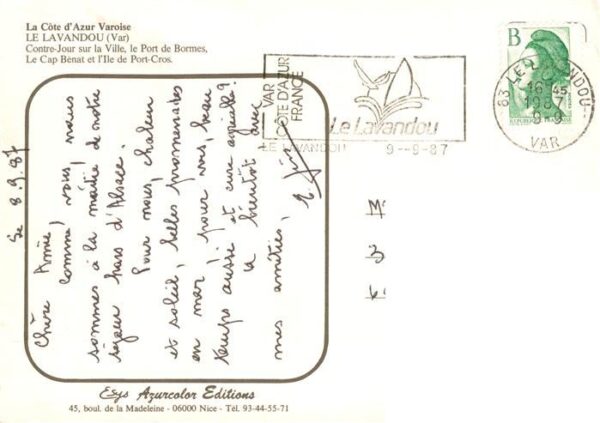 La Côte d'Azur Varoise
LE LAVANDOU (Var)
Contre-Jour sur la Ville, le Port de Bormes,
Le Cap Bénat et l'Ile de Port-Cros.
VAR
CÔTE D'AZUR
FRANCE
Le Lavandou
LE LAVANDOU 9--9-87
B
83 LE LAVANDOU
16H45
1987
9-9
VAR
Le 8.9.87
Chère Amie,
comme vous, nous
sommes à la moitié de notre
séjour hors d'Alsace.
Pour nous, chaleur
et soleil, belles promenades
en mer, pour vous, beau
temps aussi et cure agréable?
à bientôt avec
mes amitiés,
M
Edys Azurcolor Editions
45, boul. de la Madeleine - 06000 Nice - Tél. 93-44-55-71